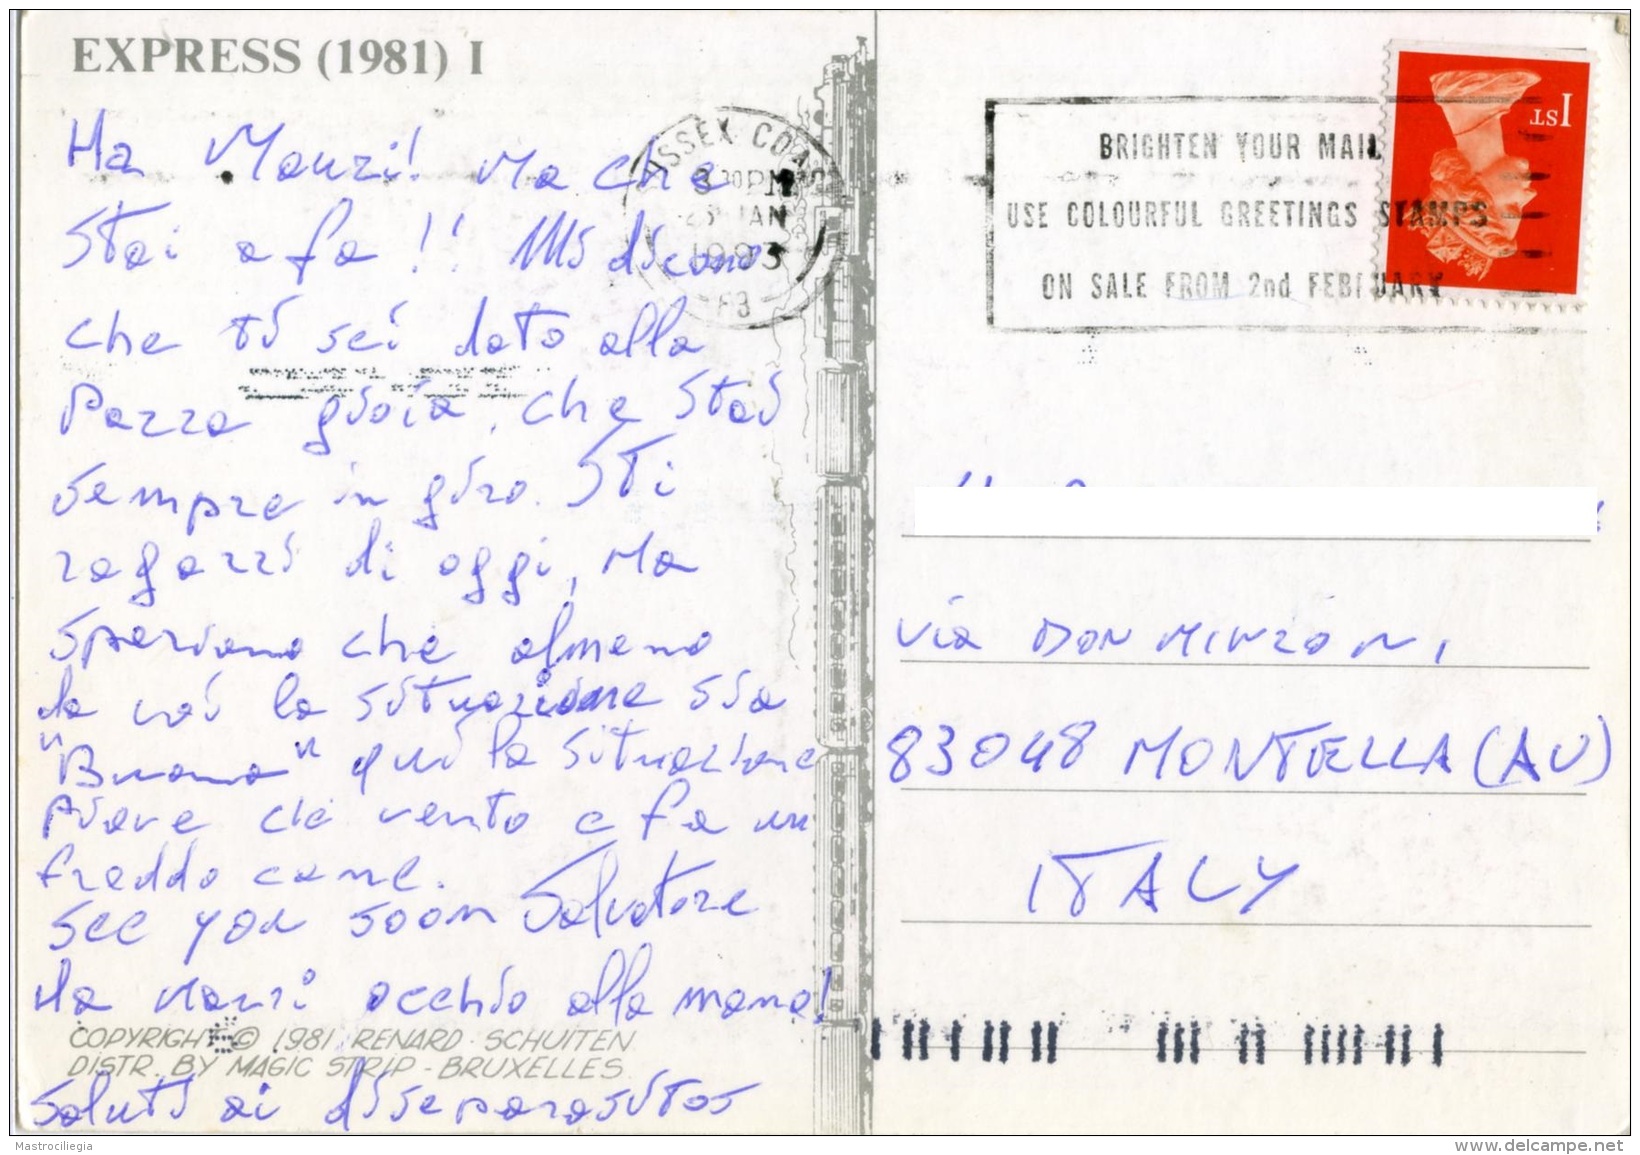 EXPRESS (1981) I
Ma Mauri! Ma che
stai a fa!! Mi dicono
che ti sei dato alla
pazza gioia, che stai
sempre in giro. Sti
ragazzi di oggi, ma
speriamo che almeno
da voi la situazione sia
"Buona" qui la situazione
piove e fa un
freddo cane.
See you soon Salvatore
Ma Mauri occhio alla mano!
COPYRIGHT © 1981 RENARD - SCHUITEN
DISTR. BY MAGIC STRIP - BRUXELLES
Saluti ai diseparasitos
SSEX COA
30 PM
JAN
1993
BRIGHTEN YOUR MAIL
USE COLOURFUL GREETINGS STAMPS
ON SALE FROM 2nd FEBRUARY
1ST
via DON MINZONI
83048 MONTELLA (AV)
ITALY
Mastrociliegia
www.delcampe.net